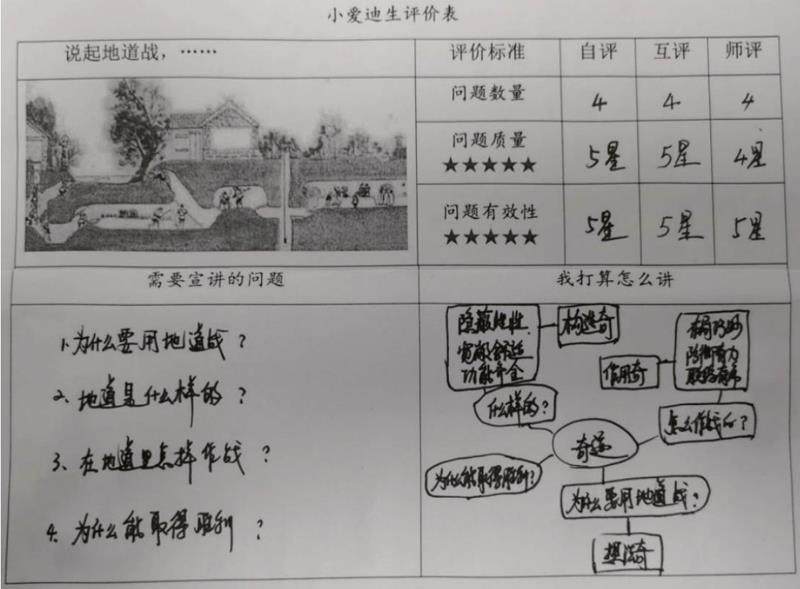 小爱迪生评价表
说起地道战，……
评价标准 自评 互评 师评
问题数量 4 4 4
问题质量
★★★★★ 5星 5星 4星
问题有效性
★★★★★ 5星 5星 5星
需要宣讲的问题
1.为什么要用地道战？
2、地道是什么样的？
3、在地道里怎样作战？
4.为什么能取得胜利？
我打算怎么讲
构造奇
功能齐全
什么样的？
作用奇
怎么作战的？
奇
为什么能取得胜利？
为什么要用地道战？
想法奇